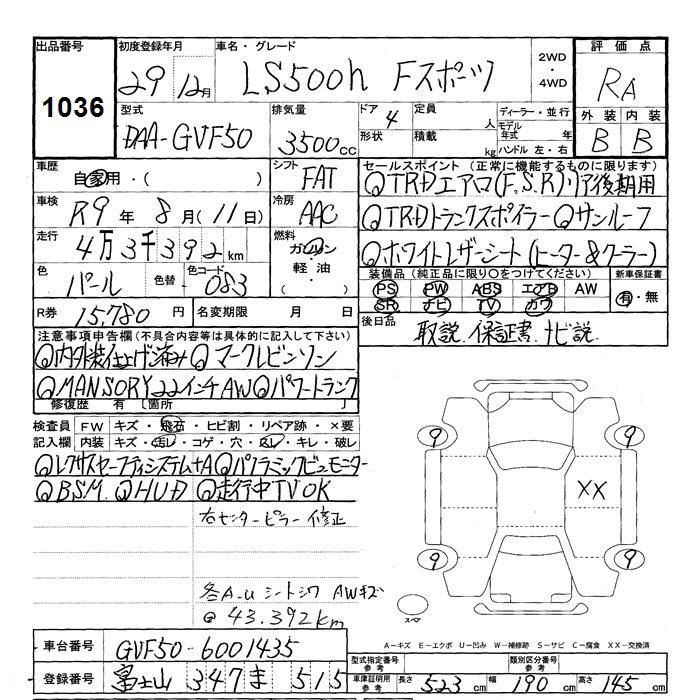 出品番号 初度登録年月 車名・グレード 2WD・4WD 評価点
1036 29 12月 LS500h Fスポーツ RA
型式 排気量 ドア 4 定員 人 ディーラー・並行 外装 内装
DAA-GVF50 3500cc 形状 積載 kg モデル年式 年 ハンドル 左・右 B B
車歴 自家用・( ) シフト FAT セールスポイント (正常に機能するものに限ります)
◎TRDエアロ(F.S.R)リア後期用
車検 R9年 8月(11日) 冷房 AAC
◎TRDトランクスポイラー ◎サンルーフ
走行 4万3千392km 燃料 ガソリン 軽油・( )
◎ホワイトレザーシート(ヒーター&クーラー)
色 パール 色替 色コード 083
装備品(純正品に限り○をつけてください) 新車保証書
PS PW ABS エアB AW 有・無
SR ナビ TV カワ
R券 15,780円 名変期限 月 日
後日品 取説.保証書.ナビ説.
注意事項申告欄(不具合内容等は具体的に記入して下さい)
◎内外装仕上げ済み ◎マークレビンソン
◎MANSORY22インチAW ◎パワートランク
修復歴 有 [箇所 ]
検査員 FW キズ・飛石・ヒビ割・リペア跡・×要
記入欄 内装 キズ・汚レ・コゲ・穴・スレ・キレ・破レ
◎レクサスセーフティシステム+A ◎パノラミックビューモニター
◎BSM. ◎HUD ◎走行中TVOK
右センターピラー修正
各A-u シートシワ AWキズ
@ 43.392km
9 9
XX
9 9
スペア
A－キズ E－エクボ U－凹み W－補修跡 S－サビ C－腐食 XX－交換済
車台番号 GVF50-6001435
型式指定番号 参考 類別区分番号 参考
登録番号 富士山 347 ま 515
車庫証明用 参考 長さ 523cm 幅 190cm 高さ 145cm